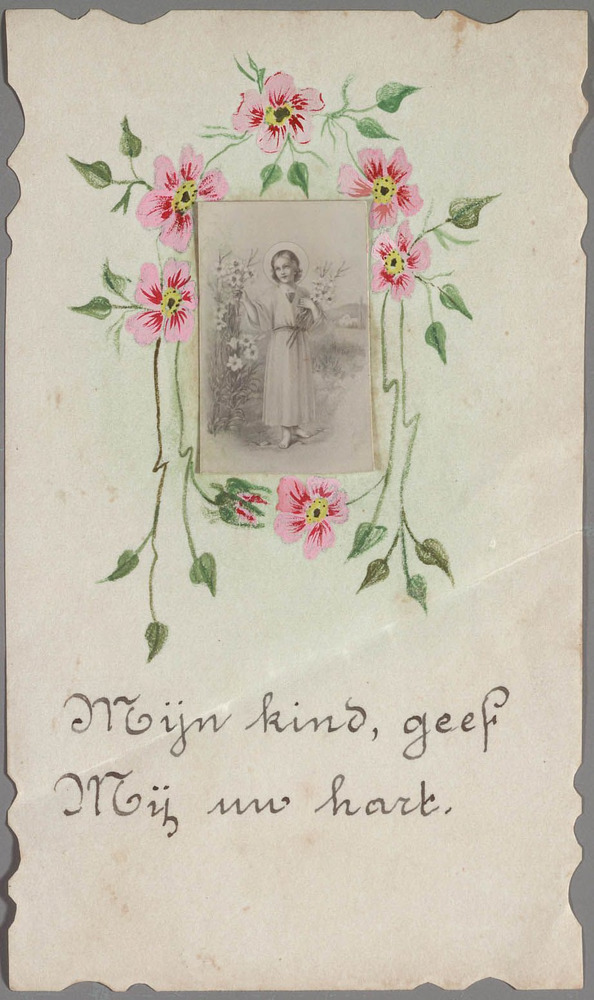 Mijn kind, geef
Mij uw hart.